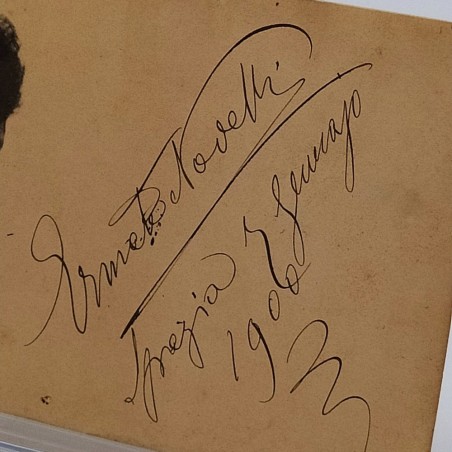 Ermete Novelli
Spezia 7 Gennajo
1900